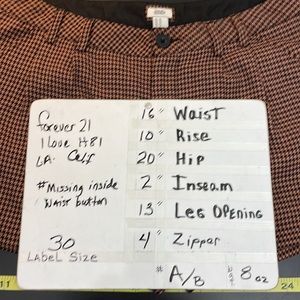 forever 21
I Love H81
LA. Calf
#Missing inside
Waist button
30
LABEL Size
16" Waist
10" Rise
20" Hip
2" Inseam
13" Leg Opening
4" Zipper
# A/B
8 oz
11
24